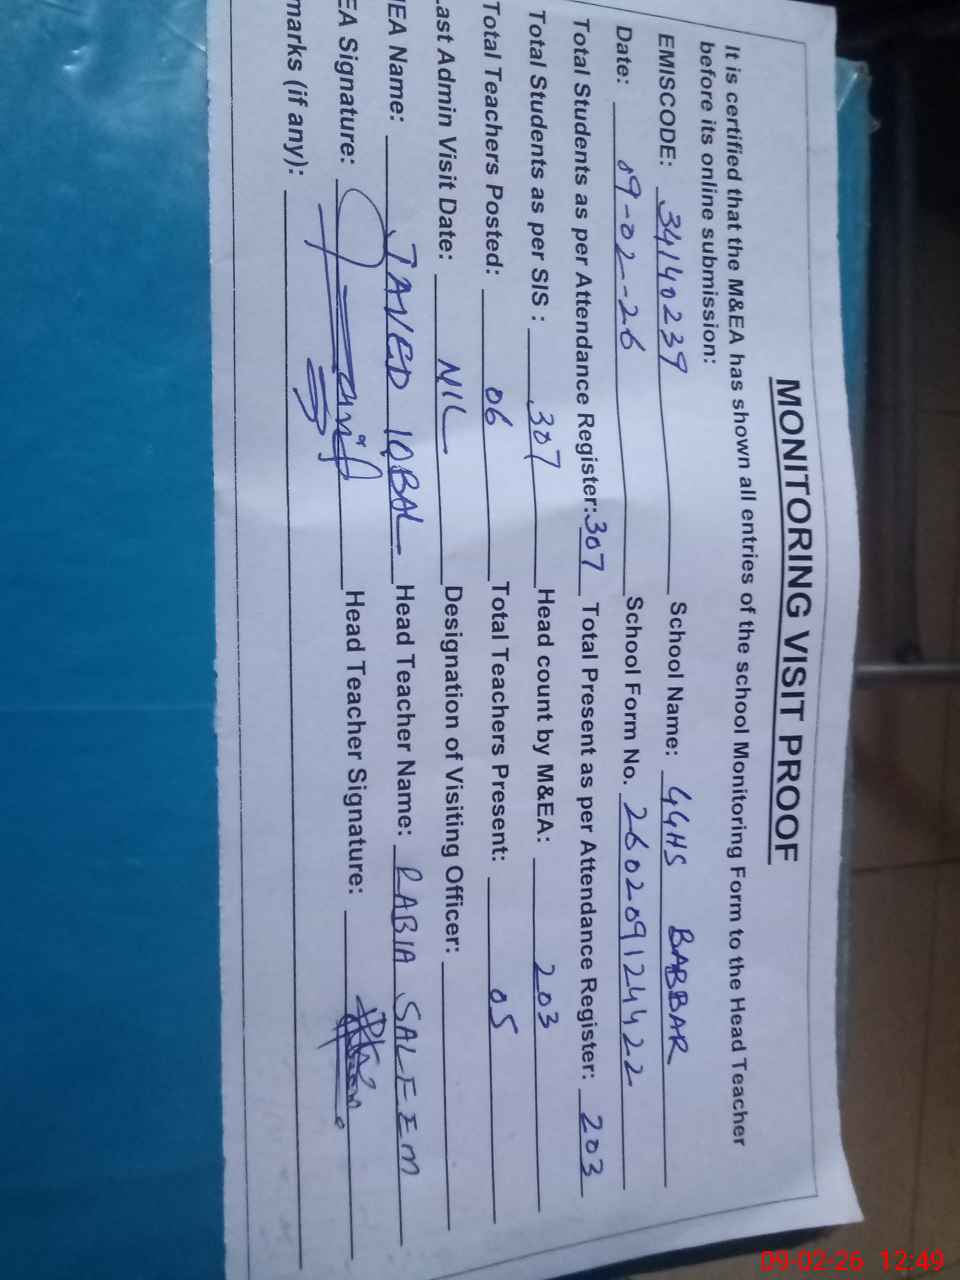 MONITORING VISIT PROOF
It is certified that the M&EA has shown all entries of the school Monitoring Form to the Head Teacher
before its online submission:
EMISCODE: 34140239 School Name: GGHS BABBAR
Date: 09-02-26 School Form No. 260209124422
Total Students as per Attendance Register: 307 Total Present as per Attendance Register: 203
Total Students as per SIS : 307 Head count by M&EA: 203
Total Teachers Posted: 06 Total Teachers Present: 05
ast Admin Visit Date: NIL Designation of Visiting Officer:
EA Name: JAVED IQBAL Head Teacher Name: RABIA SALEEM
EA Signature: Head Teacher Signature:
marks (if any):
09-02-26 12:49